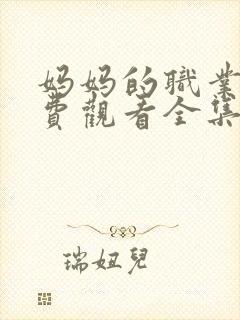 妈妈的職業
費觀看全集
瑞妞兒